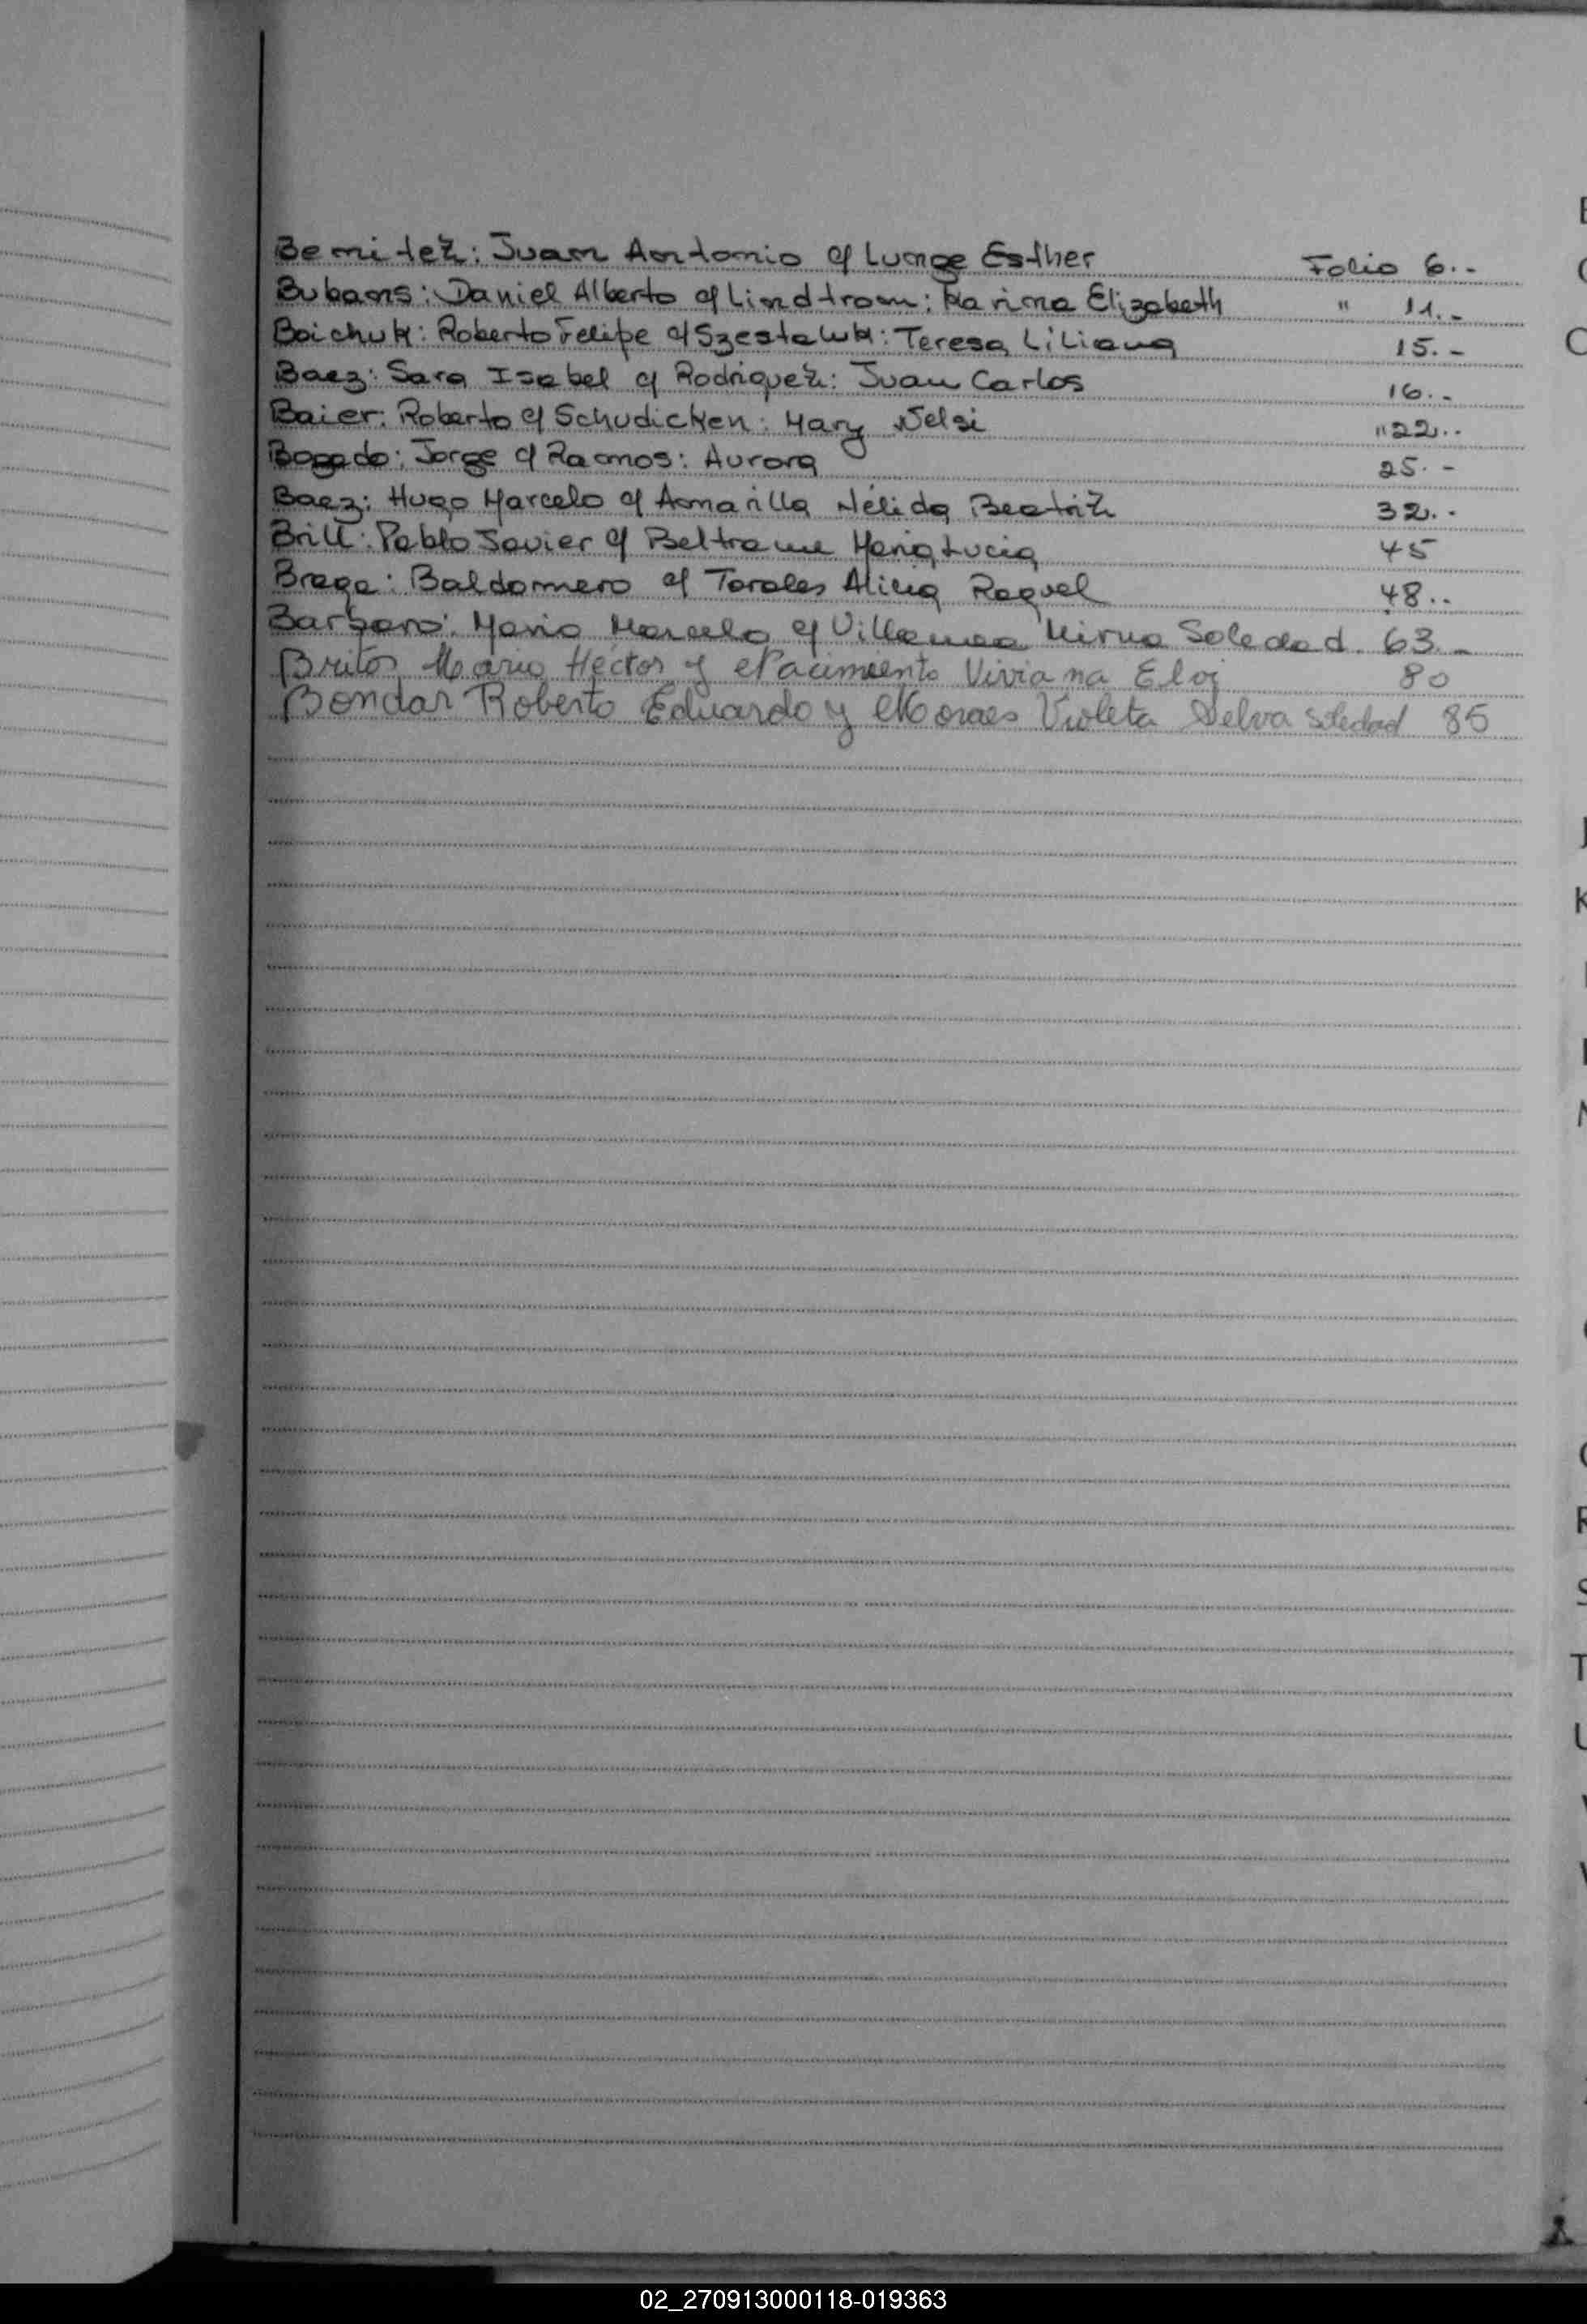 Benitez: Juan Antonio y Lunge Esther Folio 6.-
Bubans: Daniel Alberto y Lindtrom: Karina Elizabeth " 11.-
Boichuk: Roberto Felipe y Szestaluk: Teresa Liliana 15.-
Baez: Sara Isabel y Rodriguez: Juan Carlos 16.-
Baier: Roberto y Schudicken: Mary Nelsi "22.-
Bogado: Jorge y Ramos: Aurora 25.-
Baez: Hugo Marcelo y Amarilla Nélida Beatriz 32.-
Brill: Pablo Javier y Beltrame Maria Lucia 45
Braga: Baldomero y Torales Alicia Raquel 48..
Barbaro: Mario Marcelo y Mirna Soledad. 63.-
Britos Mario Héctor y Nacimiento Viviana Eloi 80
Bondar Roberto Eduardo y Moraes Violeta Selva Soledad 85
J
K
R
S
T
U
02_270913000118-019363